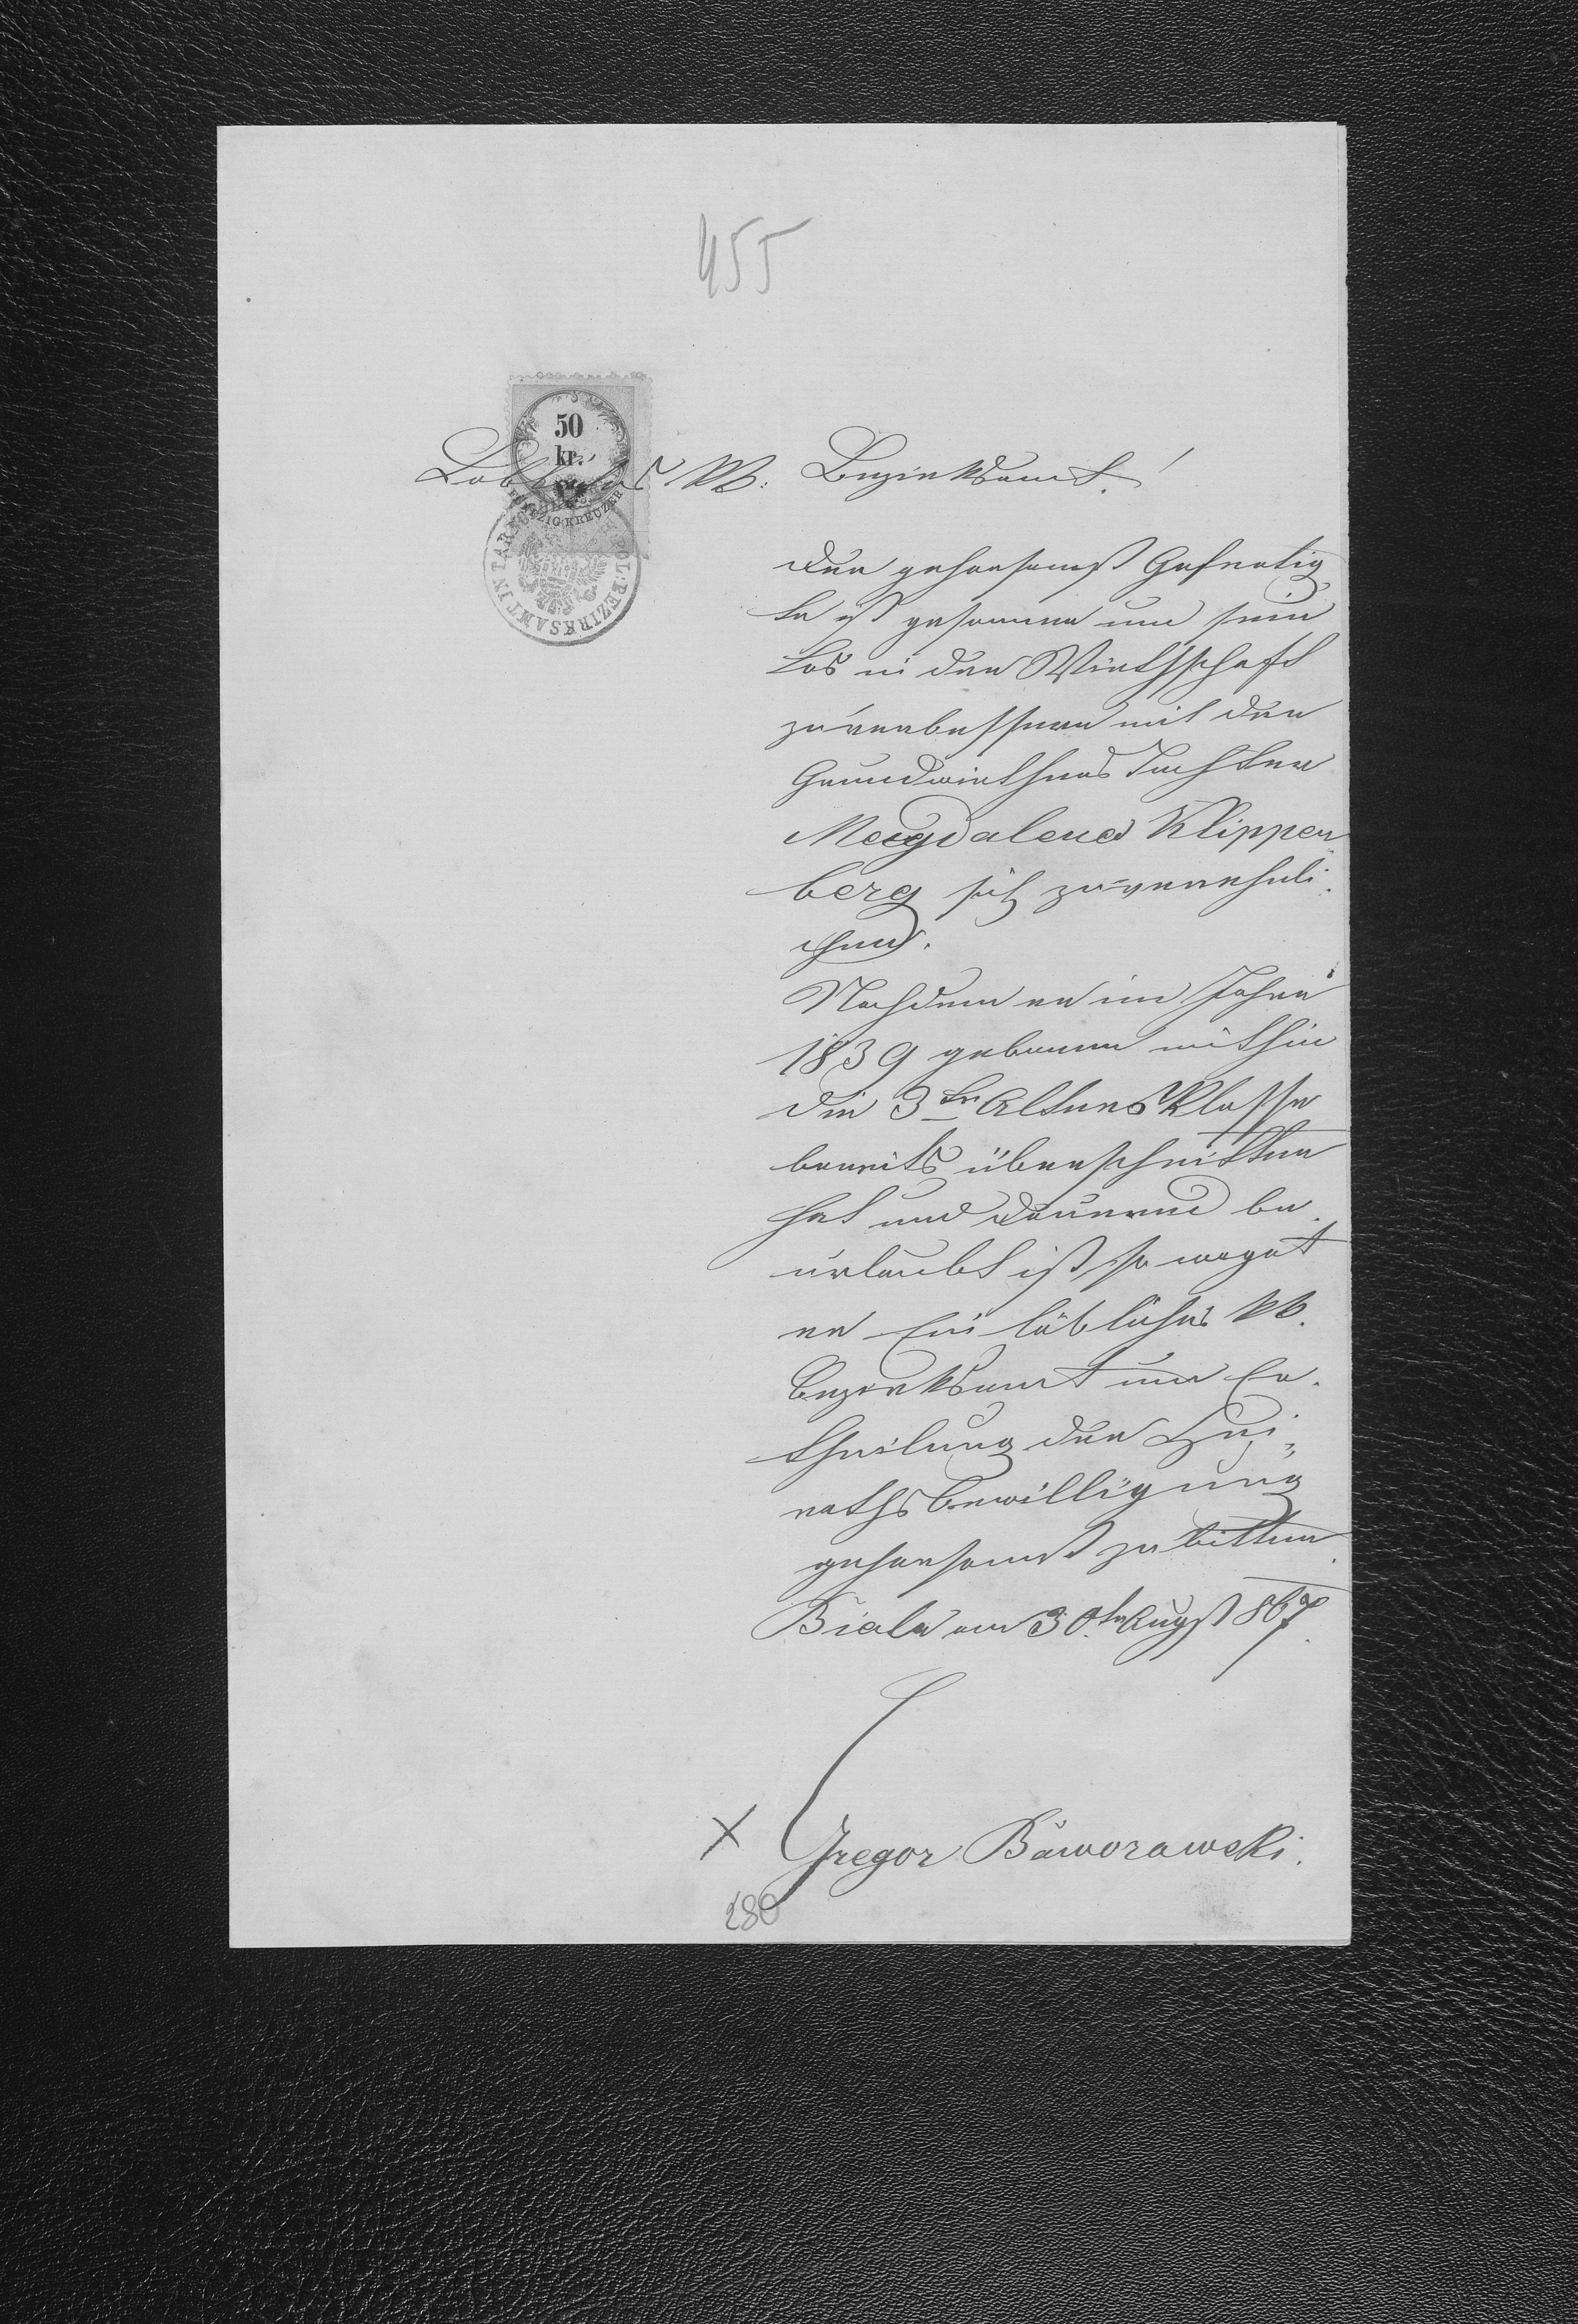 455
50
kr.
FÜNFZIG KREUZER
BEZIRKSAMT IN TAR
Löbliches kk: Bezirksamt!
Der gehorsamst Gefertig
te ist gesonnen um sein
Los in der Wirthschaft
zu verbessern mit der
Grundwirthens Tochter
Magdalena Klippen
berg sich zu vereheli
chen.
Nachdem er im Jahre
1839 geboren mithin
die 3te Alters Klasse
bereits überschritten
hat und dauernd be
urlaubt ist, so waget
er Ein löbliches kk.
Bezirksamt um Er
theilung der Hei
raths Bewilligung
gehorsamst zu bitten.
Biala am 30ten Augst 867.
Gregor Baworawski.
X
280